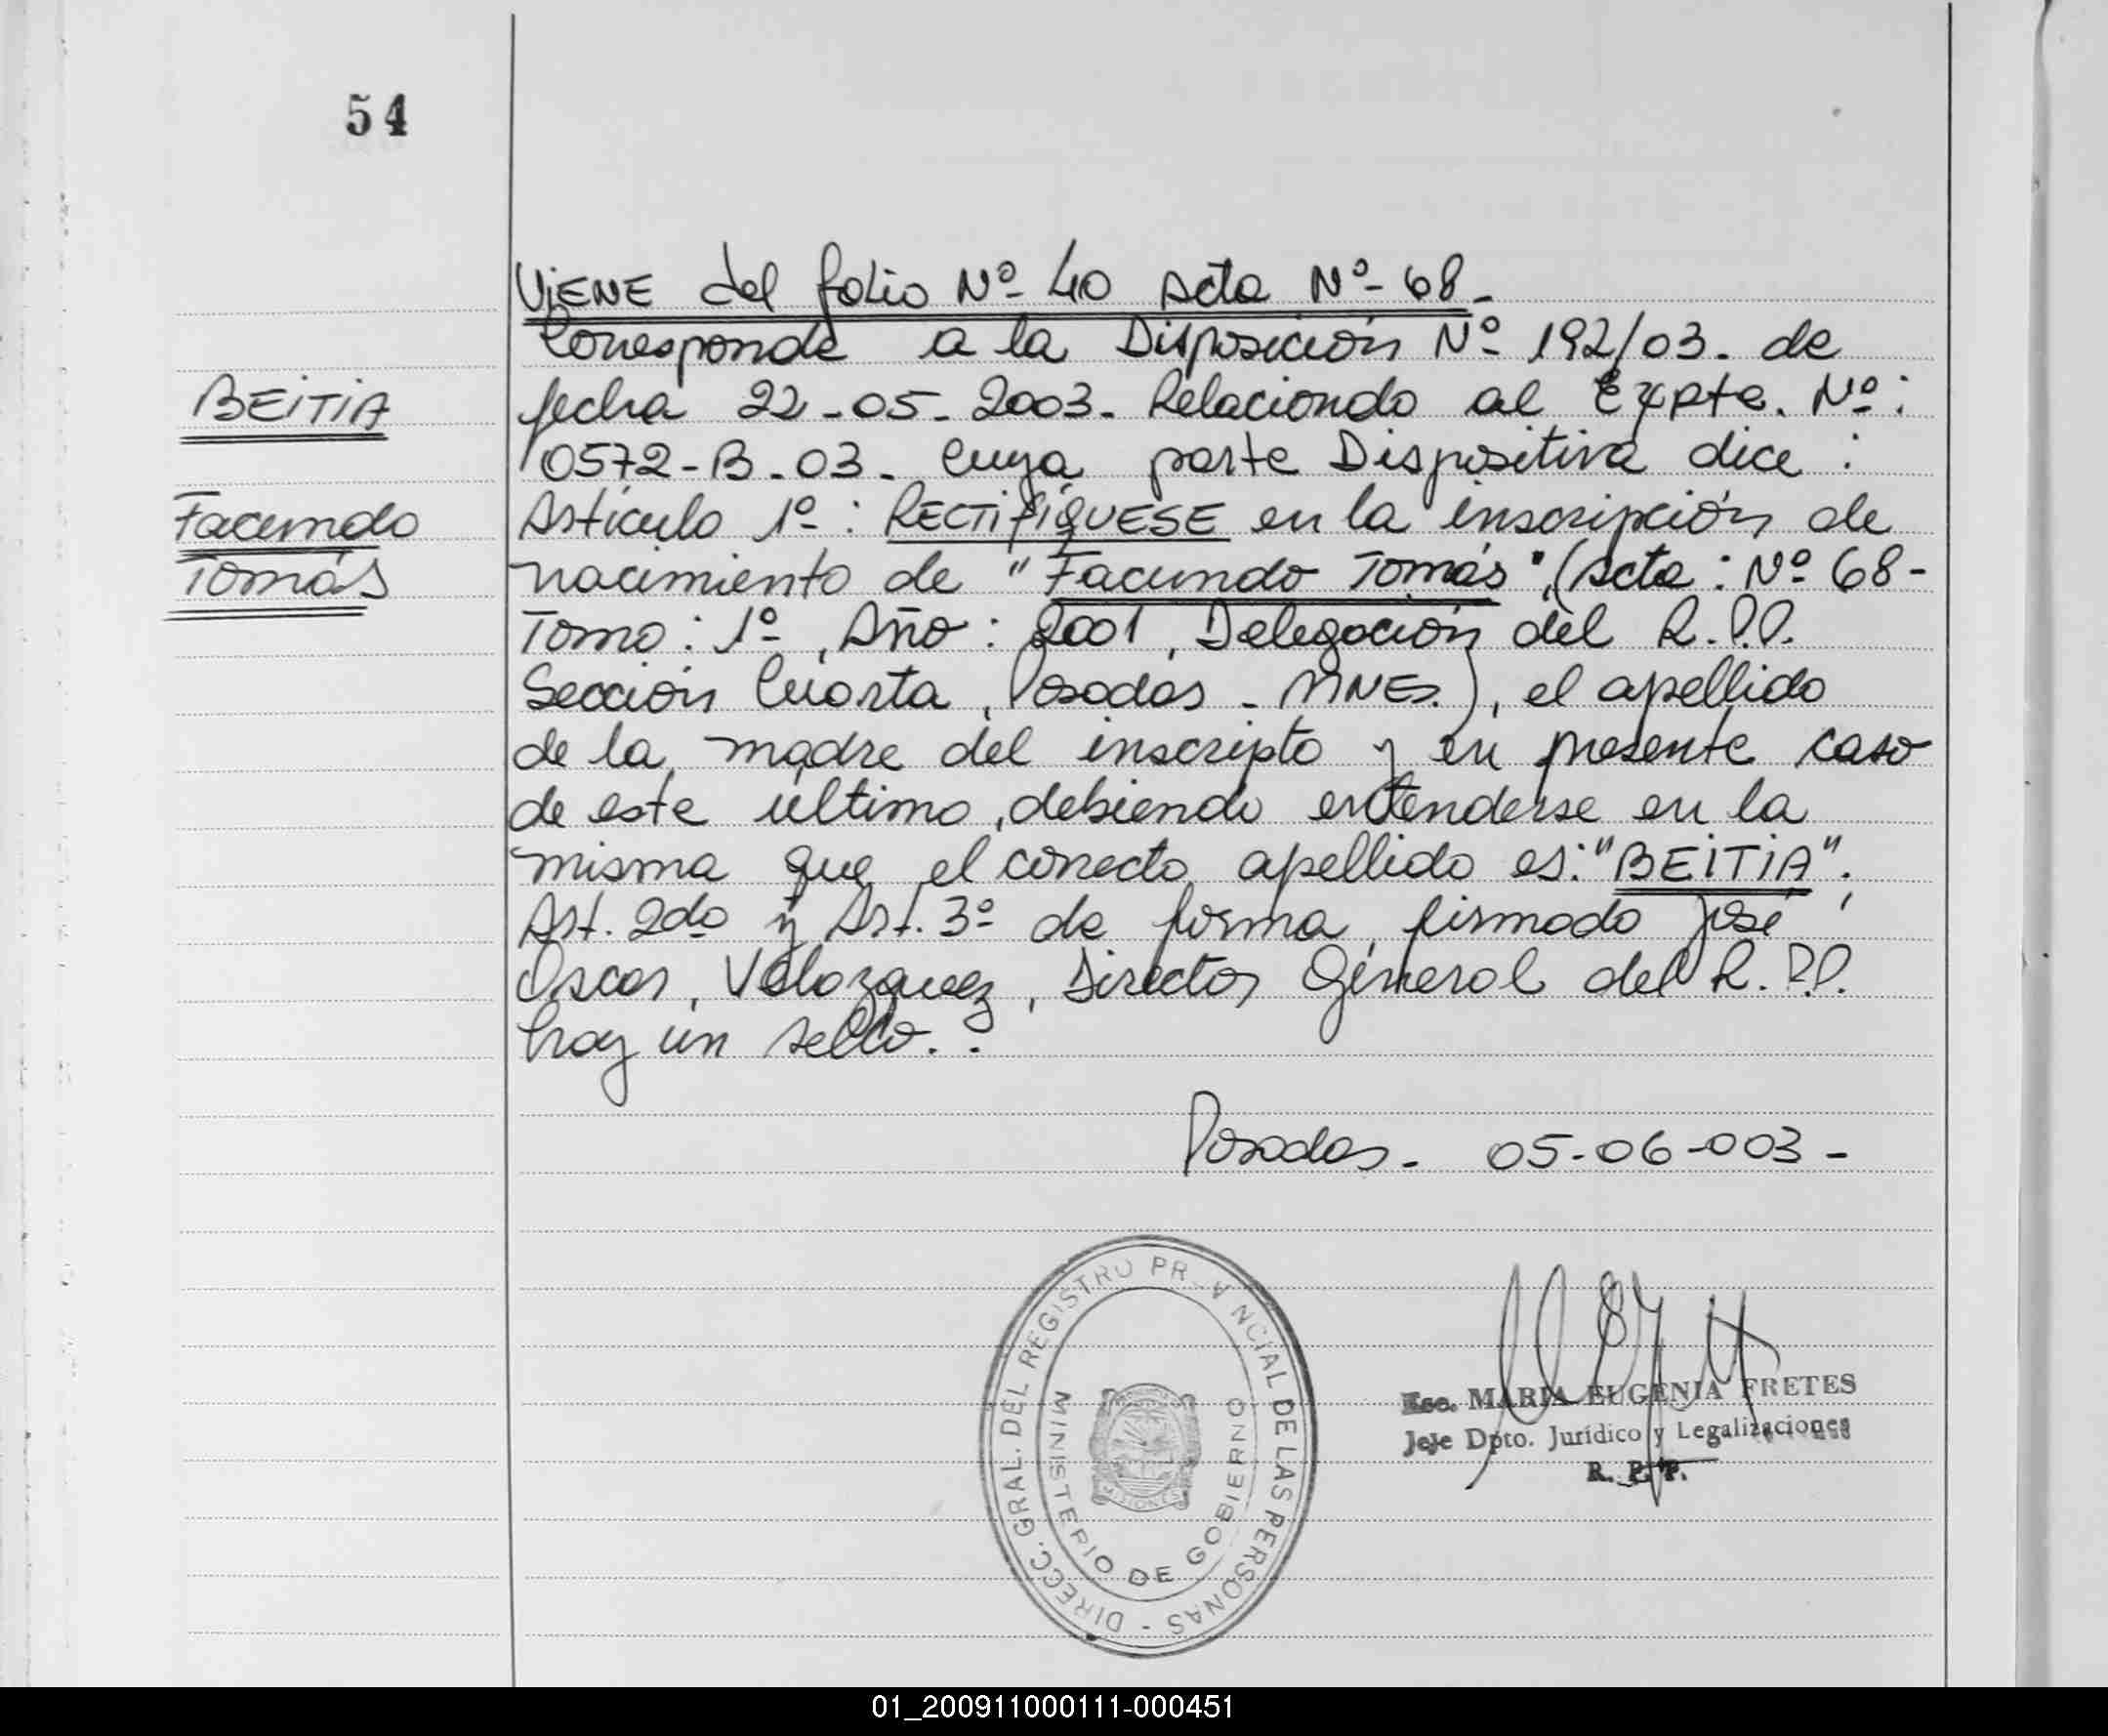 54
VIENE del folio Nº 40 Acta Nº 68-
Corresponde a la Disposición Nº 192/03. de
fecha 22-05-2003. Relaciondo al Expte. Nº:
0572-B-03- cuya parte Dispositiva dice:
Artículo 1º: RECTIFÍQUESE en la inscripción de
nacimiento de "Facundo Tomás", (Acta: Nº 68-
Tomo: 1º, Año: 2001, Delegación del R.P.P.
Sección Cuarta, Posadas - MNES.), el apellido
de la madre del inscripto y en presente caso
de este último, debiendo entenderse en la
misma que el correcto apellido es: "BEITIA".
Art. 2do y Art. 3º de forma, firmado José
Oscar, Velozquez, Director General del R.P.P.
hay un sello..
BEITIA
Facundo
Tomás
Posadas- 05-06-003-
DIRECC. GRAL. DEL REGISTRO PR VNCIAL DE LAS PERSONAS -
MINISTERIO DE GOBIERNO
MISIONES
Esc. MARIA EUGENIA FRETES
Jeje Dpto. Jurídico y Legalizaciones
R. P. P.
01_200911000111-000451